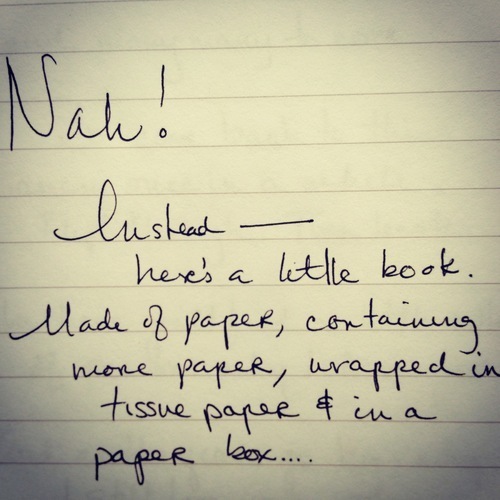 Nah!
Instead —
here's a little book.
Made of paper, containing
more paper, wrapped in
tissue paper & in a
paper box....